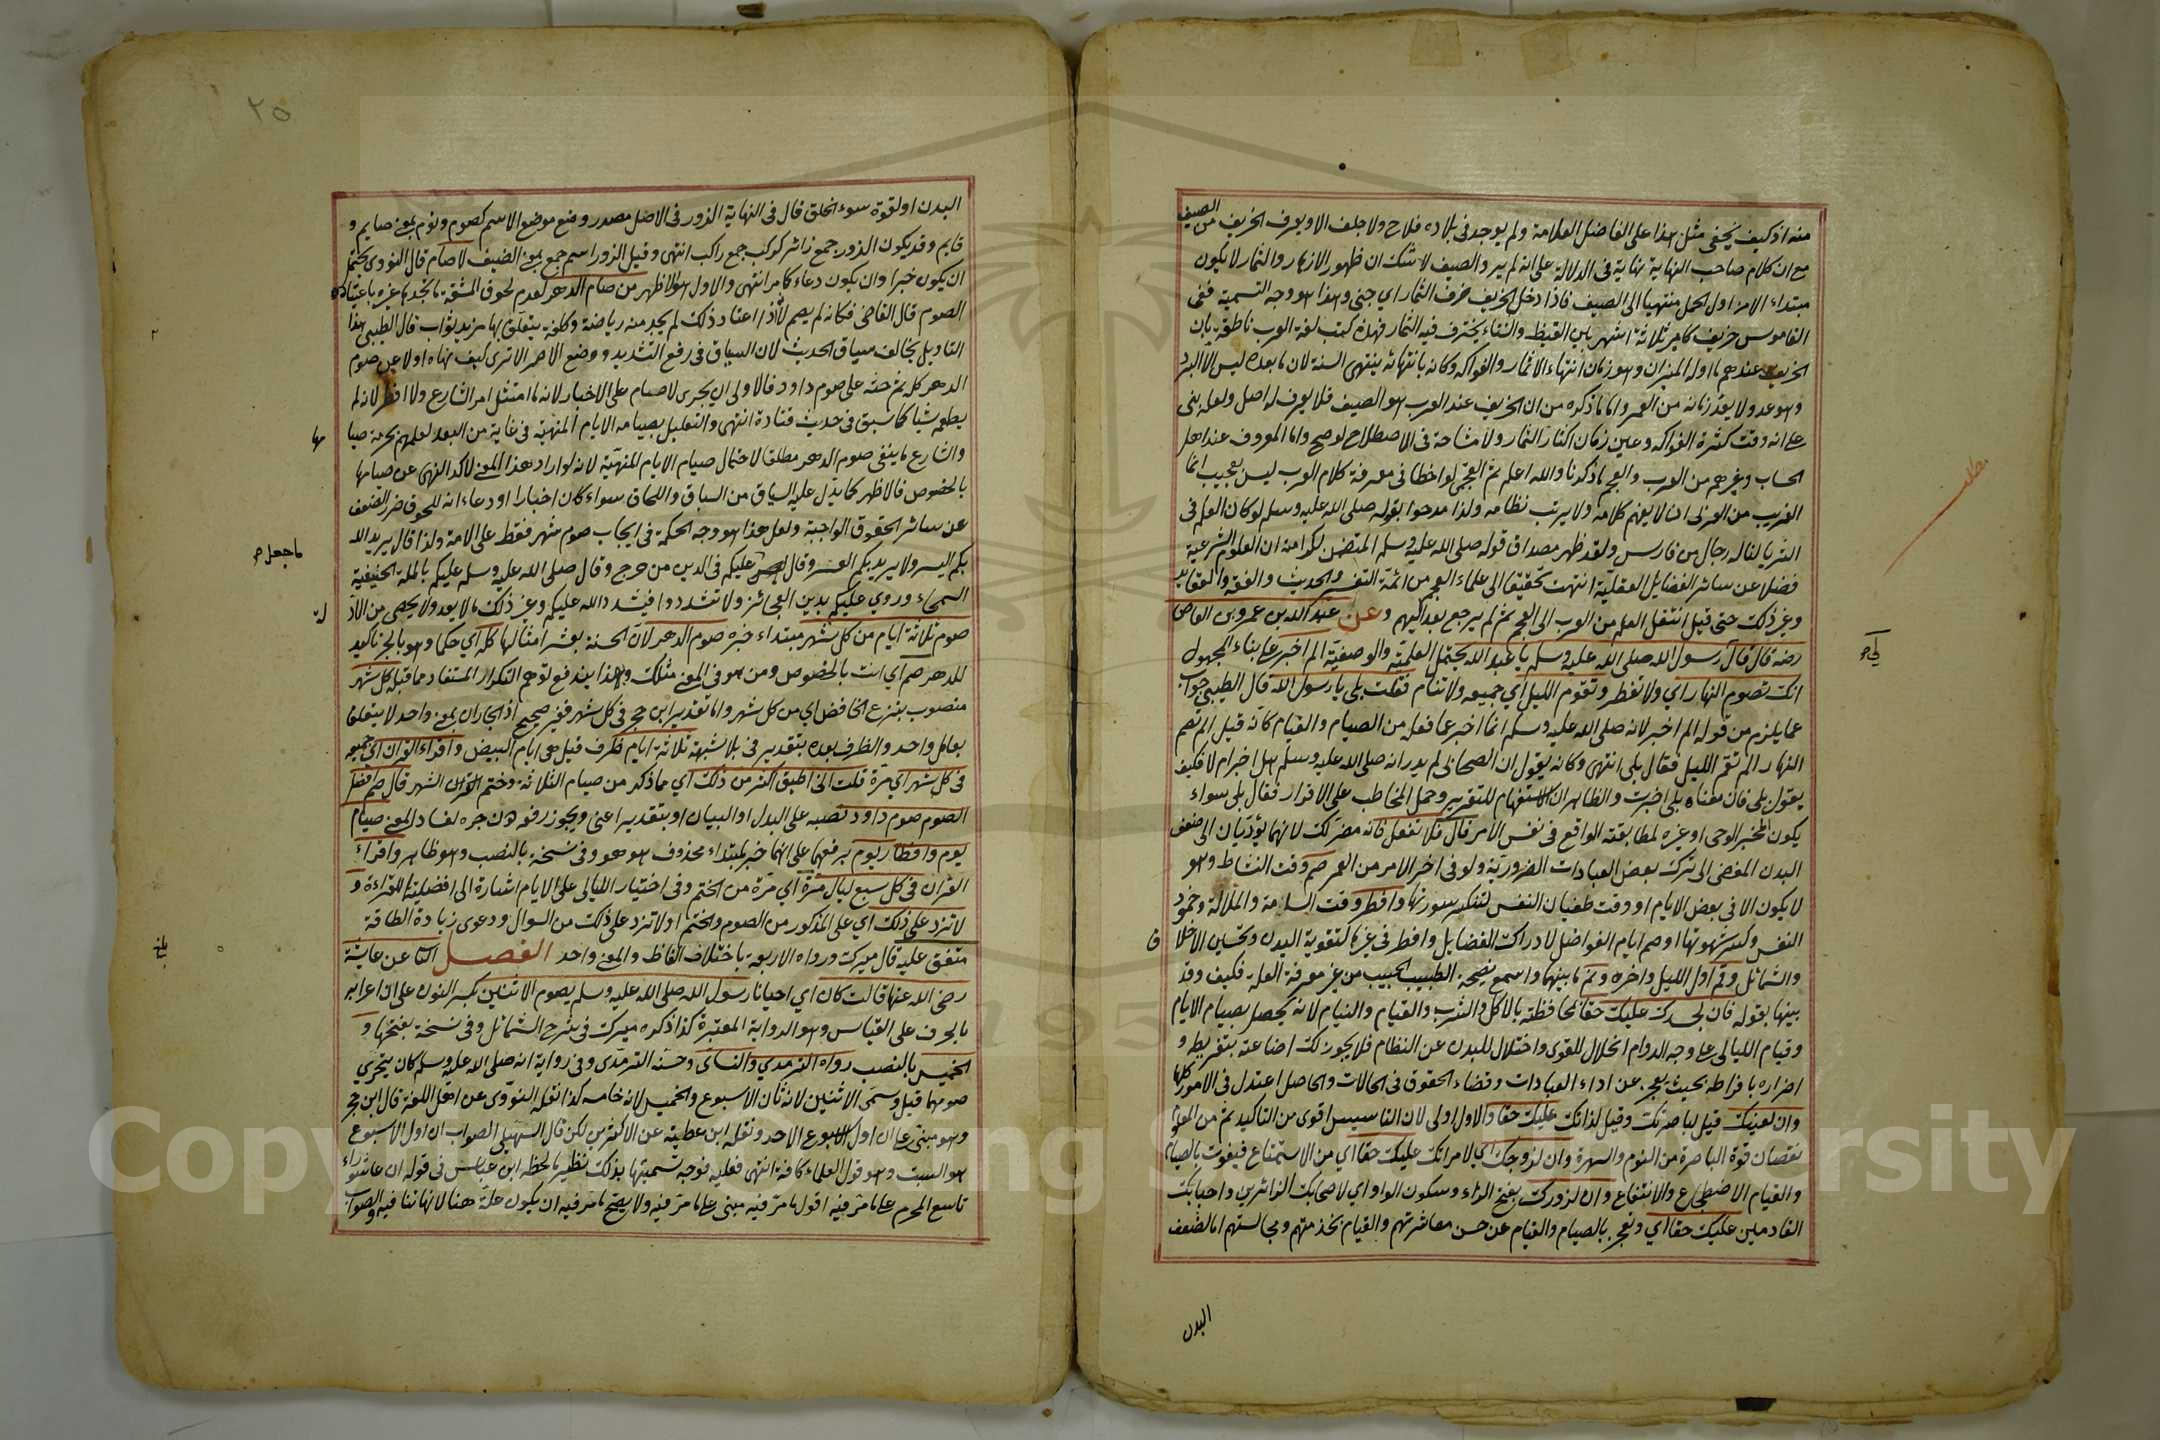 منه اذ كيف يخفى مثل هذا على الفاضل العلامة ولم يوجد في بلاده فلاح ولا جلف الا ويعرف الخريف من الصيف
مع ان كلام صاحب النهاية نهاية في الدلالة على انه لم يرد الصيف لا شك ان ظهور الازهار والثمار لا يكون
مبتداء الا من اول الحمل منتهيا الى الصيف فاذا دخل الخريف خرف الثمار اي جنى وهذا هو وجه التسمية ففي
القاموس خريف كامير ثلاثة اشهر بين القيظ والشتاء يخترف فيه الثمار فهذه كتب لغة العرب ناطقة بان
الخريف عندهم ما اوله الميزان وهو زمان انتهاء الاثمار والفواكه وكانه بانتهائه ينتهي السنة لان ما بعده ليس الا البرد
وهو عدو لا يعد زمانه من العمر واما ما ذكره من ان الخريف عند العرب هو الصيف فلا يعرف له اصل ولعله بنى
على انه وقت كثرة الفواكه وعين زمان اكثار الثمار ولا مشاحة في الاصطلاح لو صح واما المعروف عند اهل
الحساب وغيرهم من العرب والعجم ما ذكرنا والله اعلم ثم العجمي لو اخطا في معرفة كلام العرب ليس بعجيب انما
الغريب من العربي ان لا يفهم كلامه ولا يرتب نظامه ولذا مدحوا بقوله صلى الله عليه وسلم لو كان العلم في
الثريا لناله رجال من فارس ولقد ظهر مصداق قوله صلى الله عليه وسلم المتضمن لكرامته ان العلوم الشرعية
فضلا عن سائر الفضايل العقلية انتهت تحقيقا الى علماء العجم من ائمة التفسير والحديث والفقه والعقايد
وغير ذلك حتى قيل انتقل العلم من العرب الى العجم ثم لم يرجع بعد اليهم وعن عبد الله بن عمرو بن العاص
رضه قال قال رسول الله صلى الله عليه وسلم يا عبد الله يحتمل العلمية والوصفية الم اخبر على بناء المجهول
انك تصوم النهار اي ولا تفطر وتقوم الليل اي جميعه ولا تنام فقلت بلى يا رسول الله قال الطيبي جواب
عما يلزم من قوله الم اخبر لانه صلى الله عليه وسلم انما اخبر عما فعل من الصيام والقيام كانه قيل الم تصم
النهار الم تقم الليل فقال بلى انتهى وكانه يقول ان الصحابي لم يدر انه صلى الله عليه وسلم هل اخبر ام لا فكيف
يقول بلى فان معناه بلى اخبرت والظاهر ان الاستفهام للتقرير وحمل المخاطب على الاقرار فقال بلى سواء
يكون المخبر الوحي او غيره لمطابقته الواقع في نفس الامر قال فلا تفعل فانه مضر لك لانهما يؤديان الى ضعف
البدن المفضي الى ترك بعض العبادات الضرورية ولو في اخر الامر من العمر صم وقت النشاط وهو
لا يكون الا في بعض الايام او وقت طغيان النفس لتنكسر سورتها وافطر وقت السامة والملالة وخمود
النفس وكسر شهوتها او صم ايام الفواضل لادراك الفضايل وافطر في غيرها لتقوية البدن وتحسين الاخلا
ق
والشمائل وقم اول الليل واخره ونم ما بينهما واسمع نصيحة الطبيب الحبيب من غير معرفة العلة فكيف وقد
بينها بقوله فان لجسدك عليك حقا لمحافظته بالاكل والشرب والقيام والنيام لانه يحصل بصيام الايام
وقيام الليالي على وجه الدوام انحلال للقوى واختلال للبدن عن النظام فلا يجوز لك اضاعته بتفريطه و
اضراره بافراطه بحيث يعجز عن اداء العبادات وقضاء الحقوق في الحالات والحاصل اعتدل في الامور كلها
وان لعينك قيل لباصرتك وقيل لذاتك عليك حقا والاول اولى لان التاسيس اقوى من التاكيد ثم من المعلوم
نقصان قوة الباصرة من النوم والسهرة وان لزوجك اي لامراتك عليك حقا اي من الاستمتاع فيفوت بالصيام
والقيام الاضطجاع والانتفاع وان لزورك بفتح الزاء وسكون الواو اي لاصحابك الزائرين واحبابك
القادمين عليك حقا اي وتعجز بالصيام والقيام عن حسن معاشرتهم والقيام بخدمتهم ومجالستهم اما لضعف
البدن
٢٥
البدن او لقوة سوء الخلق قال في النهاية الزور في الاصل مصدر وضع موضع الاسم كصوم ونوم بمعنى صايم و
قايم وقد يكون الزور جمع زائر كركب جمع راكب انتهى وقيل الزور اسم جمع بمعنى الضيف لا صام قال النووي يحتمل
ان يكون خبرا وان يكون دعاء كامر انتهى والاول هو الاظهر من صام الدهر لعدم لحوق المشقة ما يجدها غيره باعتياده
الصوم قال القاضي فكانه لم يصم لانه اذا اعتاد ذلك لم يجد منه رياضة وكلفة يتعلق بها مزيد ثواب قال الطيبي هذا
التاويل يخالف سياق الحديث لان السياق في رفع التشديد ووضع الاصر الا ترى كيف نهاه اولا عن صوم
الدهر كله ثم حثه على صوم داود فالاولى ان يجرى لا صام على الاخبار لانه ما امتثل امر الشارع ولا افطر لانه لم
يطعم شيا كما سبق في حديث قتادة انتهى والتعليل بصيامه الايام المنهية في غاية من البعد لعلمهم بحرمة صيا
مها
والشارع ما ينفى صوم الدهر مطلقا لاحتمال صيام الايام المنهية لانه لو اراد هذا المعنى لاكد النهي عن صيامها
بالخصوص فالاظهر كما يدل عليه السياق من السباق واللحاق سواء كان اخبارا او دعاء انه للحوق ضرر الضعف
عن سائر الحقوق الواجبة ولعل هذا هو وجه الحكمة في ايجاب صوم شهر فقط على الامة ولذا قال يريد الله
ما جعل
بكم اليسر ولا يريد بكم العسر وقال عليكم في الدين من حرج وقال صلى الله عليه وسلم عليكم بالملة الحنيفية
السمحاء وروي عليكم بدين العجائز ولا تشددوا فيشدد الله عليكم وغير ذلك ما لا يعد ولا يحصى من الاد
لة
صوم ثلاثة ايام من كل شهر مبتداء خبره صوم الدهر لان الحسنة بعشر امثالها كله اي حكما وهو بالجر تاكيد
للدهر صم اي انت بالخصوص ومن هو في المعنى مثلك وبهذا يندفع توهم التكرار المستفاد مما قبله كل شهر
منصوب بنزع الخافض اي من كل شهر واما تقدير ابن حجر في كل شهر فغير صحيح اذ الجاران بمعنى واحد لا يتعلقا
بعامل واحد والظرف بعده بتقدير في بلا شبهة ثلاثة ايام ظرف قيل هي ايام البيض واقراء القران اي جميعه
في كل شهر اي مرة قلت اني اطيق اكثر من ذلك اي مما ذكر من صيام الثلاثة وختم القران الشهر قال صم افضل
الصوم صوم داود نصبه على البدل او البيان او بتقدير اعني ويجوز رفعه دون جره لفساد المعنى صيام
يوم وافطار يوم برفعهما على انهما خبر لمبتداء محذوف هو هو وفي نسخة بالنصب وهو ظاهر واقراء
القران في كل سبع ليال مرة اي مرة من الختم وفي اختيار الليالي على الايام اشارة الى افضلية القراءة و
لا تزد على ذلك اي على المذكور من الصوم والختم او لا تزد على ذلك من السوال ودعوى زيادة الطاقة
متفق عليه قال ميرك ورواه الاربعة باختلاف الفاظ والمعنى واحد الفصل الثا عن عايشة
رضي الله عنها قالت كان اي احيانا رسول الله صلى الله عليه وسلم يصوم الاثنين بكسر النون على ان اعرابه
بالحرف على القياس وهو الرواية المعتبرة كذا ذكره ميرك في شرح الشمائل وفي نسخة بفتحها و
الخميس بالنصب رواه الترمذي والنسائ وحسنه الترمذي وفي رواية انه صلى الله عليه وسلم كان يتحرى
صومهما قيل وسمى الاثنين لانه ثان الاسبوع والخميس لانه خامسه كذا نقله النووى عن اهل اللغة قال ابن حجر
وهو مبنى على ان اول الاسبوع الاحد ونقله ابن عطية عن الاكثرين لكن قال السهيلي الصواب ان اول الاسبوع
هو السبت وهو قول العلماء كافة انتهى فعليه فوجه تسميتها بذلك نظير ما لحظه ابن عباس في قوله ان عاشوراء
تاسع المحرم على ما مر فيه اقول ما مر فيه مبنى على ما مر فيه ولا يصح ما مر فيه ان يكون علة هنا لانها تنافيه والصواب